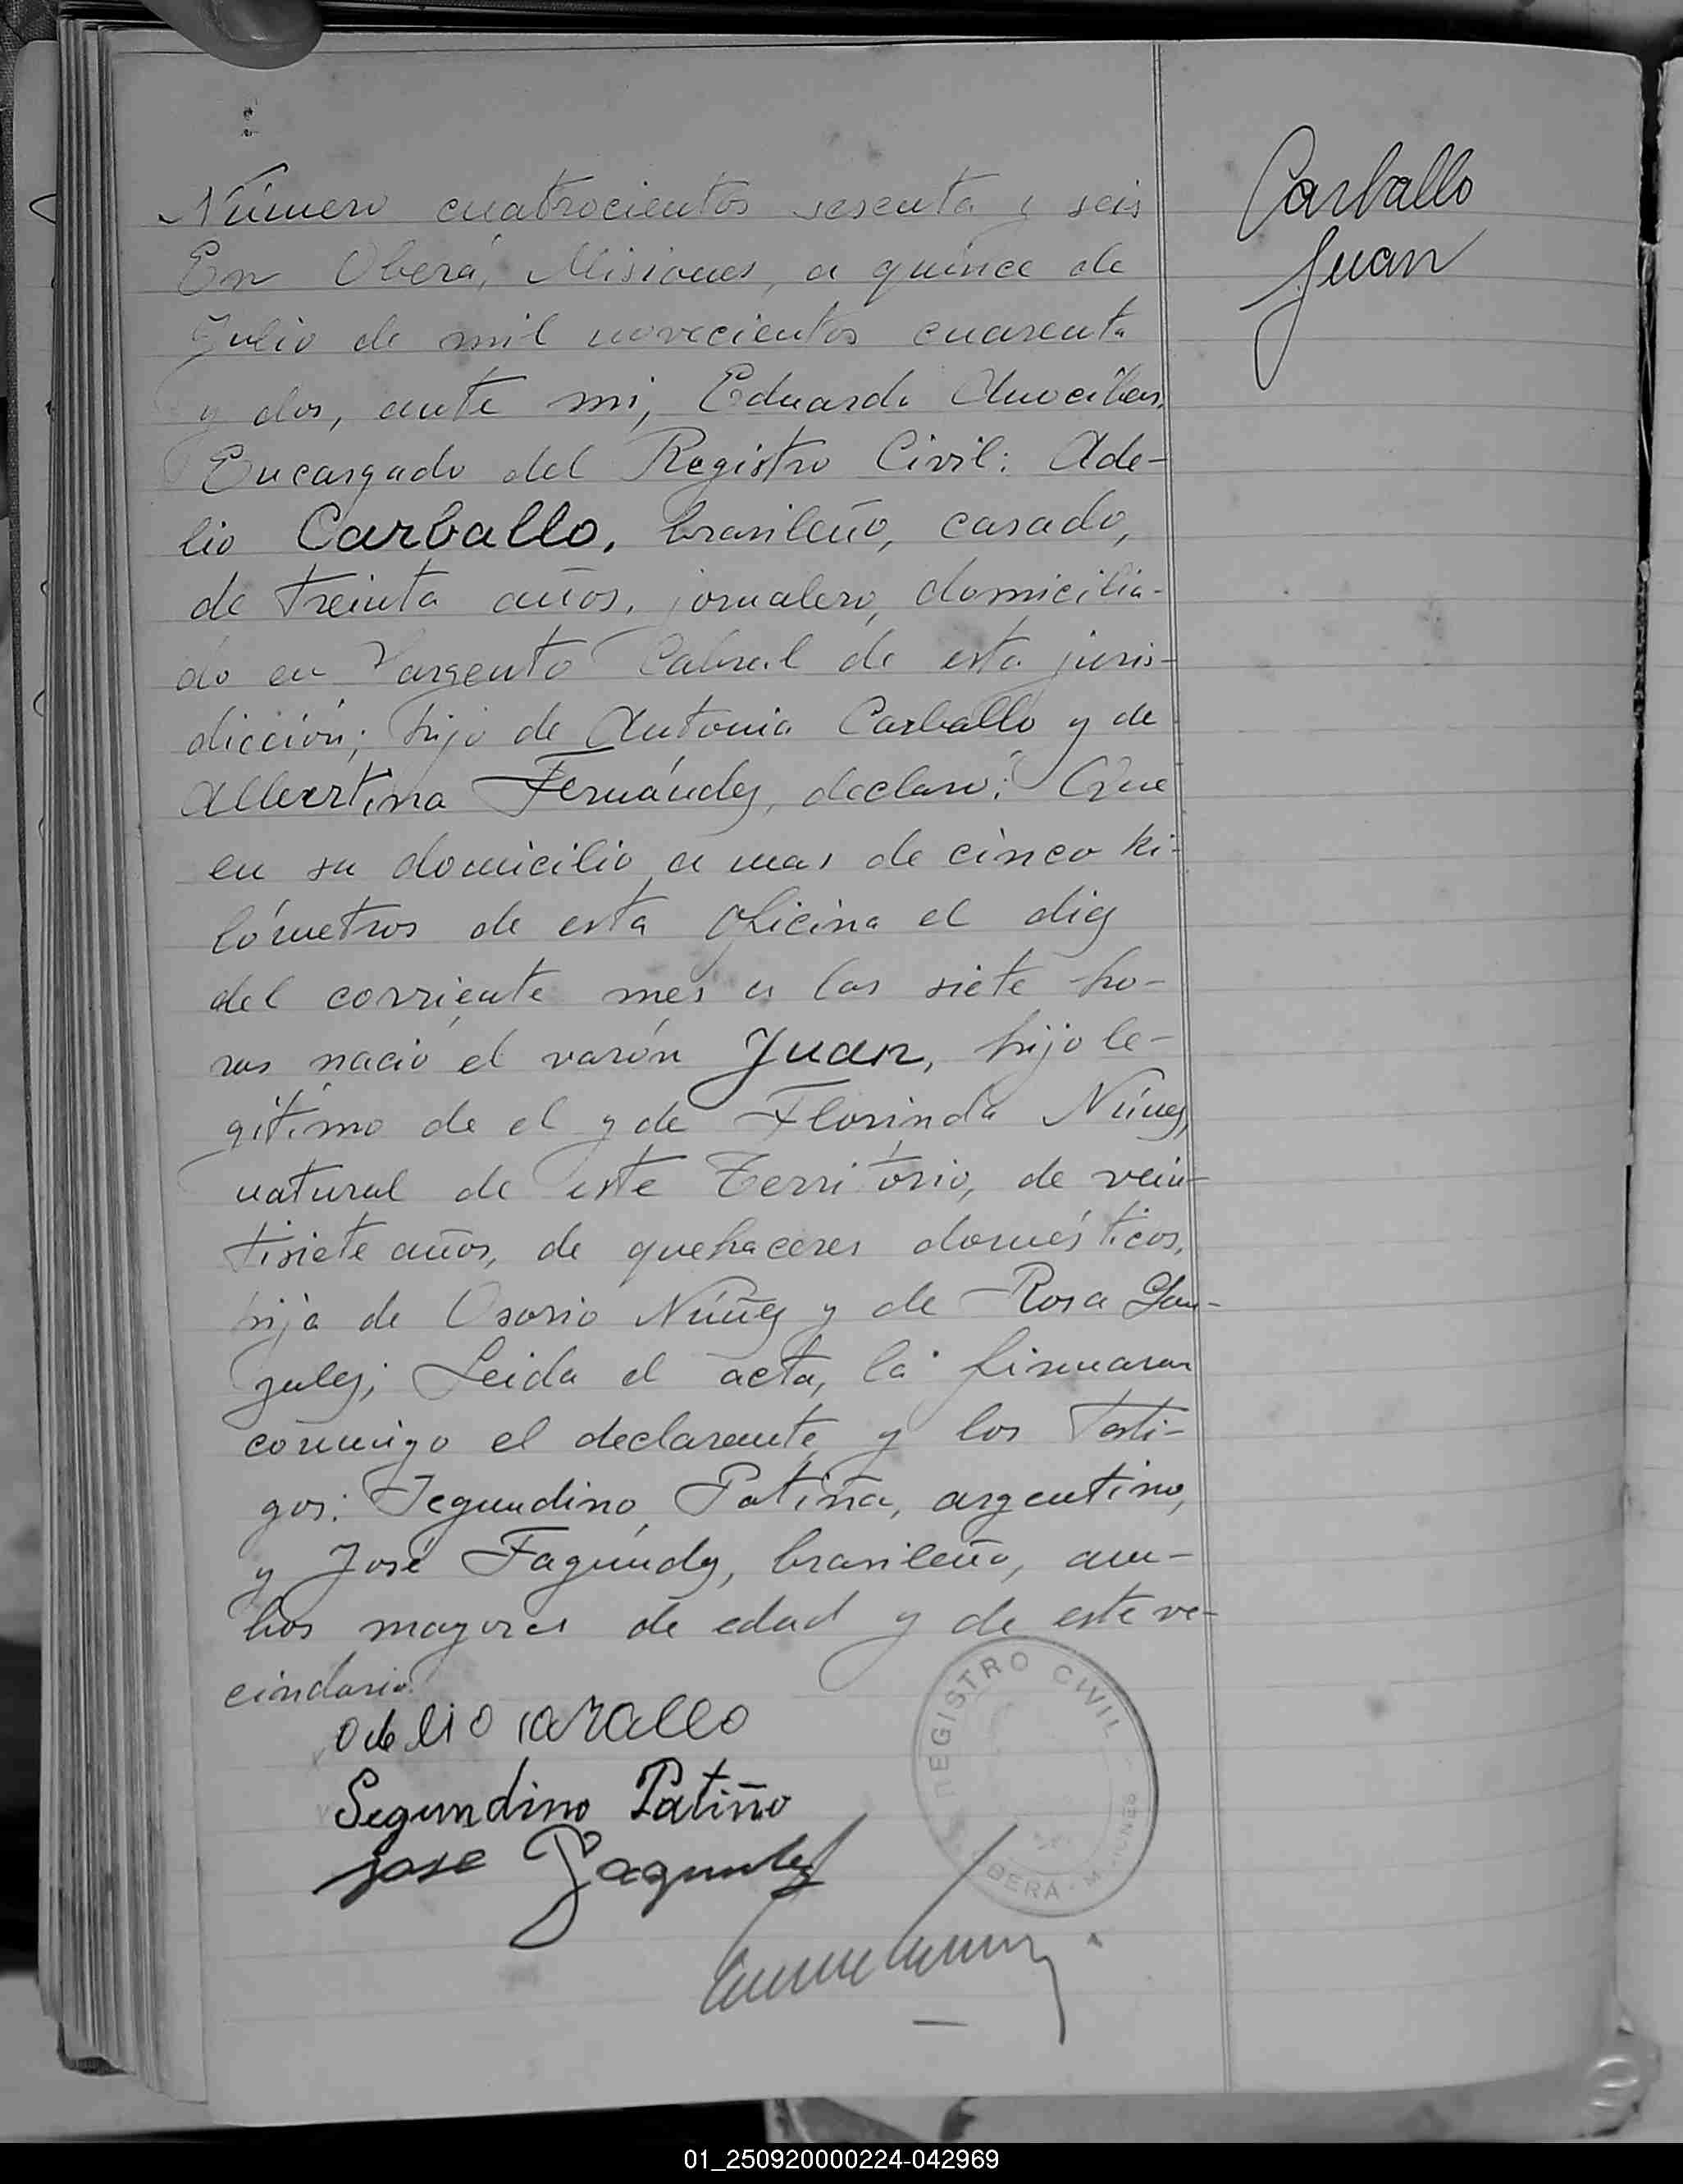 Número cuatrocientos sesenta y seis
En Oberá, Misiones, a quince de
Julio de mil novecientos cuarenta
y dos, ante mi, Eduardo
Encargado del Registro Civil: Ade-
lio Carballo, brasileño, casado,
de treinta años, jornalero, domicilia-
do en Sargento Cabral de esta juris-
dicción; hijo de Antonia Carballo y de
Albertina Fernández, declaro: Que
en su domicilio a mas de cinco ki-
lómetros de esta oficina el diez
del corriente mes a las siete ho-
ras nació el varón Juan, hijo le-
gítimo de el y de Florinda Núñez,
natural de este Territorio, de vein-
tisiete años, de quehaceres domésticos,
hija de Osorio Núñez y de Rosa Gon-
zalez; Leida el acta, la firmaron
conmigo el declarante y los testi-
gos: Segundino Patiña, argentino,
y José Fagúndez, brasileño, am-
bos mayores de edad y de este ve-
cindario.
Carballo
Juan
Odelio carallo
Segundino Patiño
jose Fagundez
REGISTRO CIVIL
OBERÁ - MISIONES
01_250920000224-042969